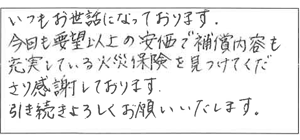 いつもお世話になっております.
今回も要望以上の安価で補償内容も
充実している火災保険を見つけてくだ
さり感謝しております.
引き続きよろしくお願いいたします。